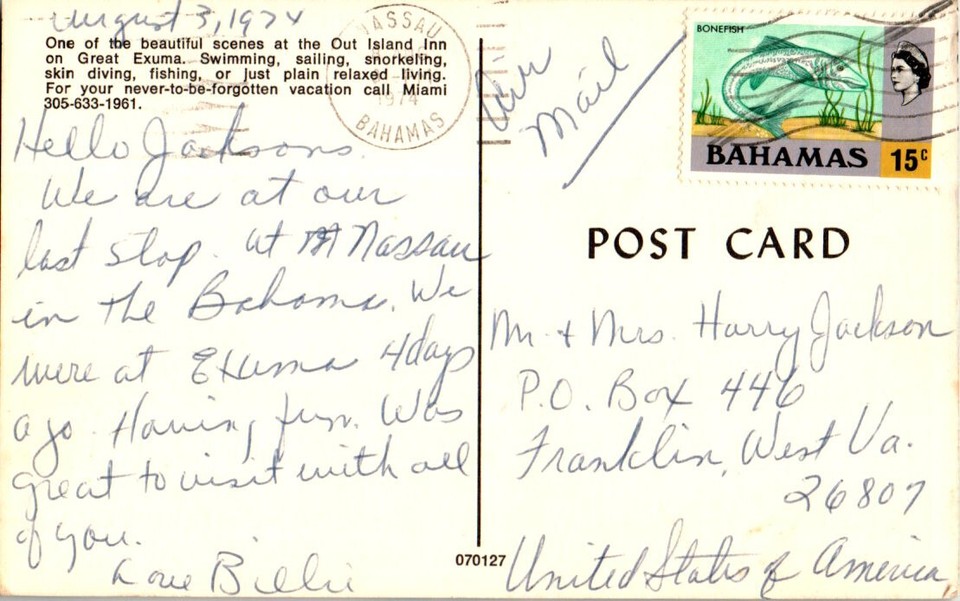 August 3, 1974
One of the beautiful scenes at the Out Island Inn
on Great Exuma. Swimming, sailing, snorkeling,
skin diving, fishing, or just plain relaxed living.
For your never-to-be-forgotten vacation call Miami
305-633-1961.
Hello Jacksons.
We are at our
last stop. at Nassau
in the Bahamas. We
were at Exuma 4 days
ago. Having fun. Was
great to visit with all
of you.
Love Billie
NASSAU
1974
BAHAMAS
Air
Mail
BONEFISH
BAHAMAS 15c
POST CARD
Mr. + Mrs. Harry Jackson
P.O. Box 446
Franklin, West Va.
26807
United States of America
070127